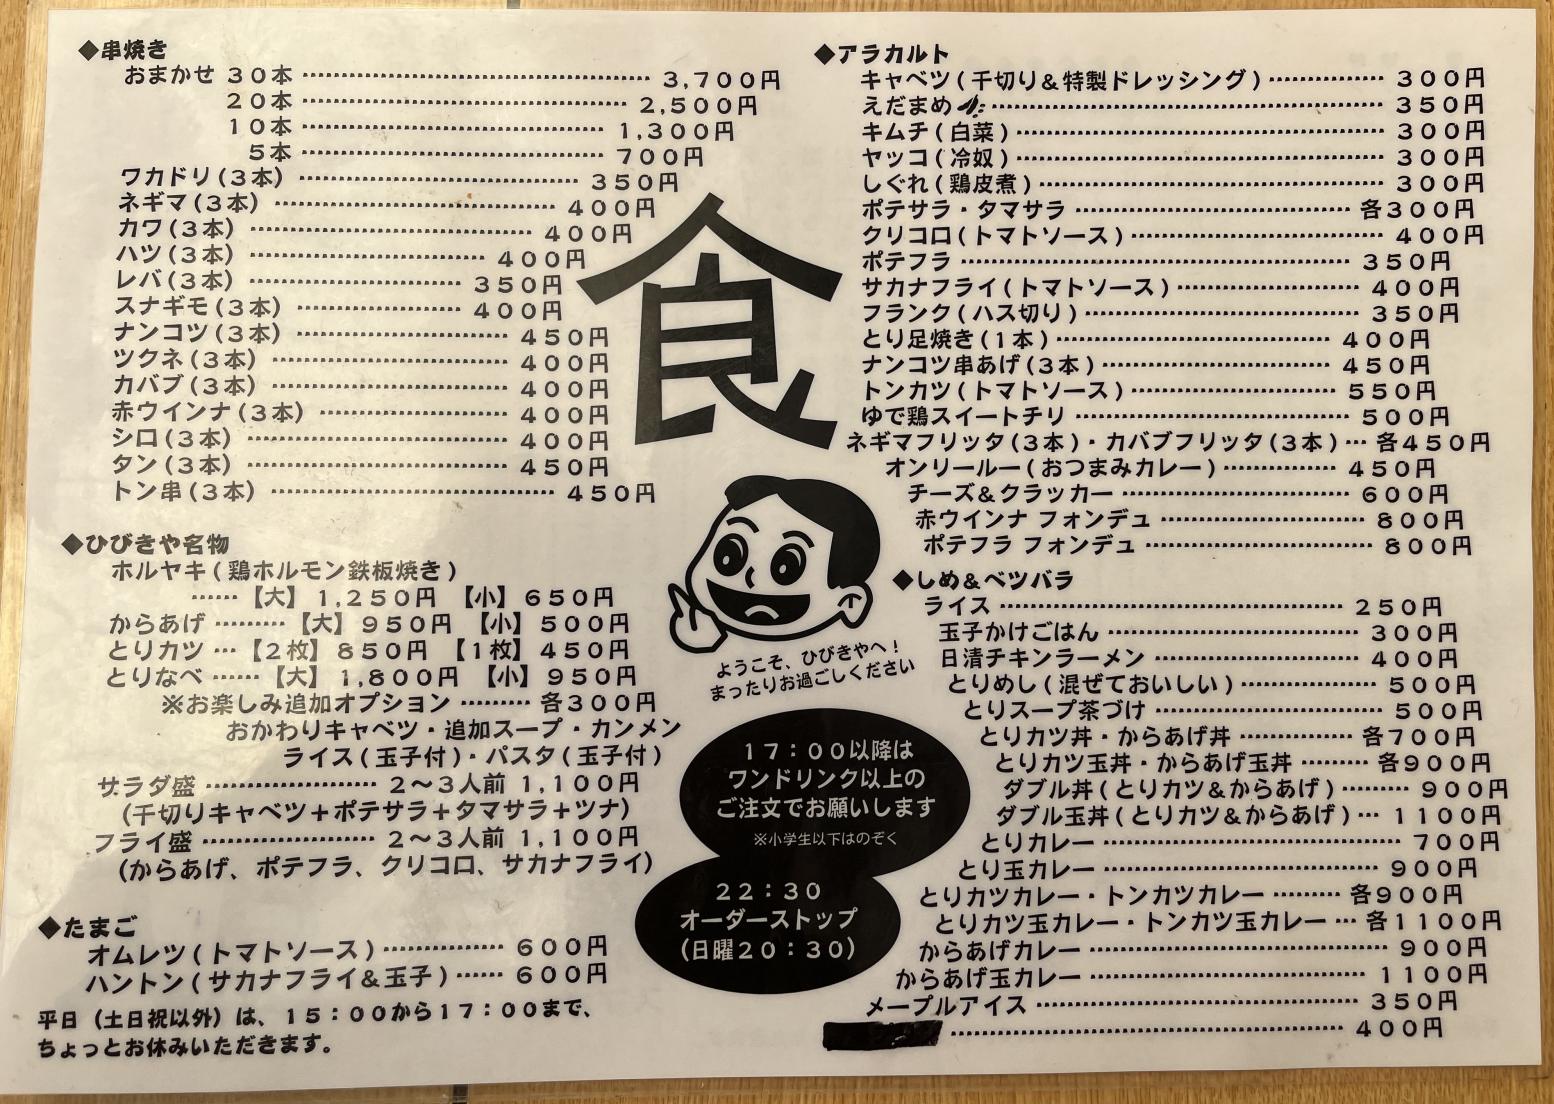 ◆串焼き
おまかせ 30本 ………… 3,700円
20本 ………… 2,500円
10本 ………… 1,300円
5本 ………… 700円
ワカドリ(3本) ………… 350円
ネギマ(3本) ………… 400円
カワ(3本) ………… 400円
ハツ(3本) ………… 400円
レバ(3本) ………… 350円
スナギモ(3本) ………… 400円
ナンコツ(3本) ………… 450円
ツクネ(3本) ………… 400円
カバブ(3本) ………… 400円
赤ウインナ(3本) ………… 400円
シロ(3本) ………… 400円
タン(3本) ………… 450円
トン串(3本) ………… 450円
◆ひびきや名物
ホルヤキ(鶏ホルモン鉄板焼き)
……【大】1,250円 【小】650円
からあげ ………【大】950円 【小】500円
とりカツ …【2枚】850円 【1枚】450円
とりなべ ……【大】1,800円 【小】950円
※お楽しみ追加オプション ……… 各300円
おかわりキャベツ・追加スープ・カンメン
ライス(玉子付)・パスタ(玉子付)
サラダ盛 ………… 2〜3人前 1,100円
(千切りキャベツ+ポテサラ+タマサラ+ツナ)
フライ盛 ………… 2〜3人前 1,100円
(からあげ、ポテフラ、クリコロ、サカナフライ)
◆たまご
オムレツ(トマトソース) ………… 600円
ハントン(サカナフライ&玉子) …… 600円
平日(土日祝以外)は、15:00から17:00まで、
ちょっとお休みいただきます。
食
ようこそ、ひびきやへ!
まったりお過ごしください
17:00以降は
ワンドリンク以上の
ご注文でお願いします
※小学生以下はのぞく
22:30
オーダーストップ
(日曜20:30)
◆アラカルト
キャベツ(千切り&特製ドレッシング) ………… 300円
えだまめ ………… 350円
キムチ(白菜) ………… 300円
ヤッコ(冷奴) ………… 300円
しぐれ(鶏皮煮) ………… 300円
ポテサラ・タマサラ ………… 各300円
クリコロ(トマトソース) ………… 400円
ポテフラ ………… 350円
サカナフライ(トマトソース) ………… 400円
フランク(ハス切り) ………… 350円
とり足焼き(1本) ………… 400円
ナンコツ串あげ(3本) ………… 450円
トンカツ(トマトソース) ………… 550円
ゆで鶏スイートチリ ………… 500円
ネギマフリッタ(3本)・カバブフリッタ(3本) … 各450円
オンリールー(おつまみカレー) ………… 450円
チーズ&クラッカー ………… 600円
赤ウインナ フォンデュ ………… 800円
ポテフラ フォンデュ ………… 800円
◆しめ&ベツバラ
ライス ………… 250円
玉子かけごはん ………… 300円
日清チキンラーメン ………… 400円
とりめし(混ぜておいしい) ………… 500円
とりスープ茶づけ ………… 500円
とりカツ丼・からあげ丼 ………… 各700円
とりカツ玉丼・からあげ玉丼 ……… 各900円
ダブル丼(とりカツ&からあげ) ……… 900円
ダブル玉丼(とりカツ&からあげ) … 1100円
とりカレー ………… 700円
とり玉カレー ………… 900円
とりカツカレー・トンカツカレー ……… 各900円
とりカツ玉カレー・トンカツ玉カレー … 各1100円
からあげカレー ………… 900円
からあげ玉カレー ………… 1100円
メープルアイス ………… 350円
………… 400円